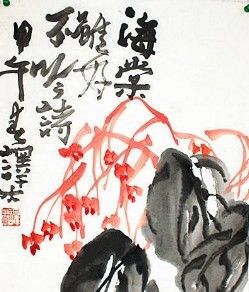 海棠
雖好
不吟詩
甲午